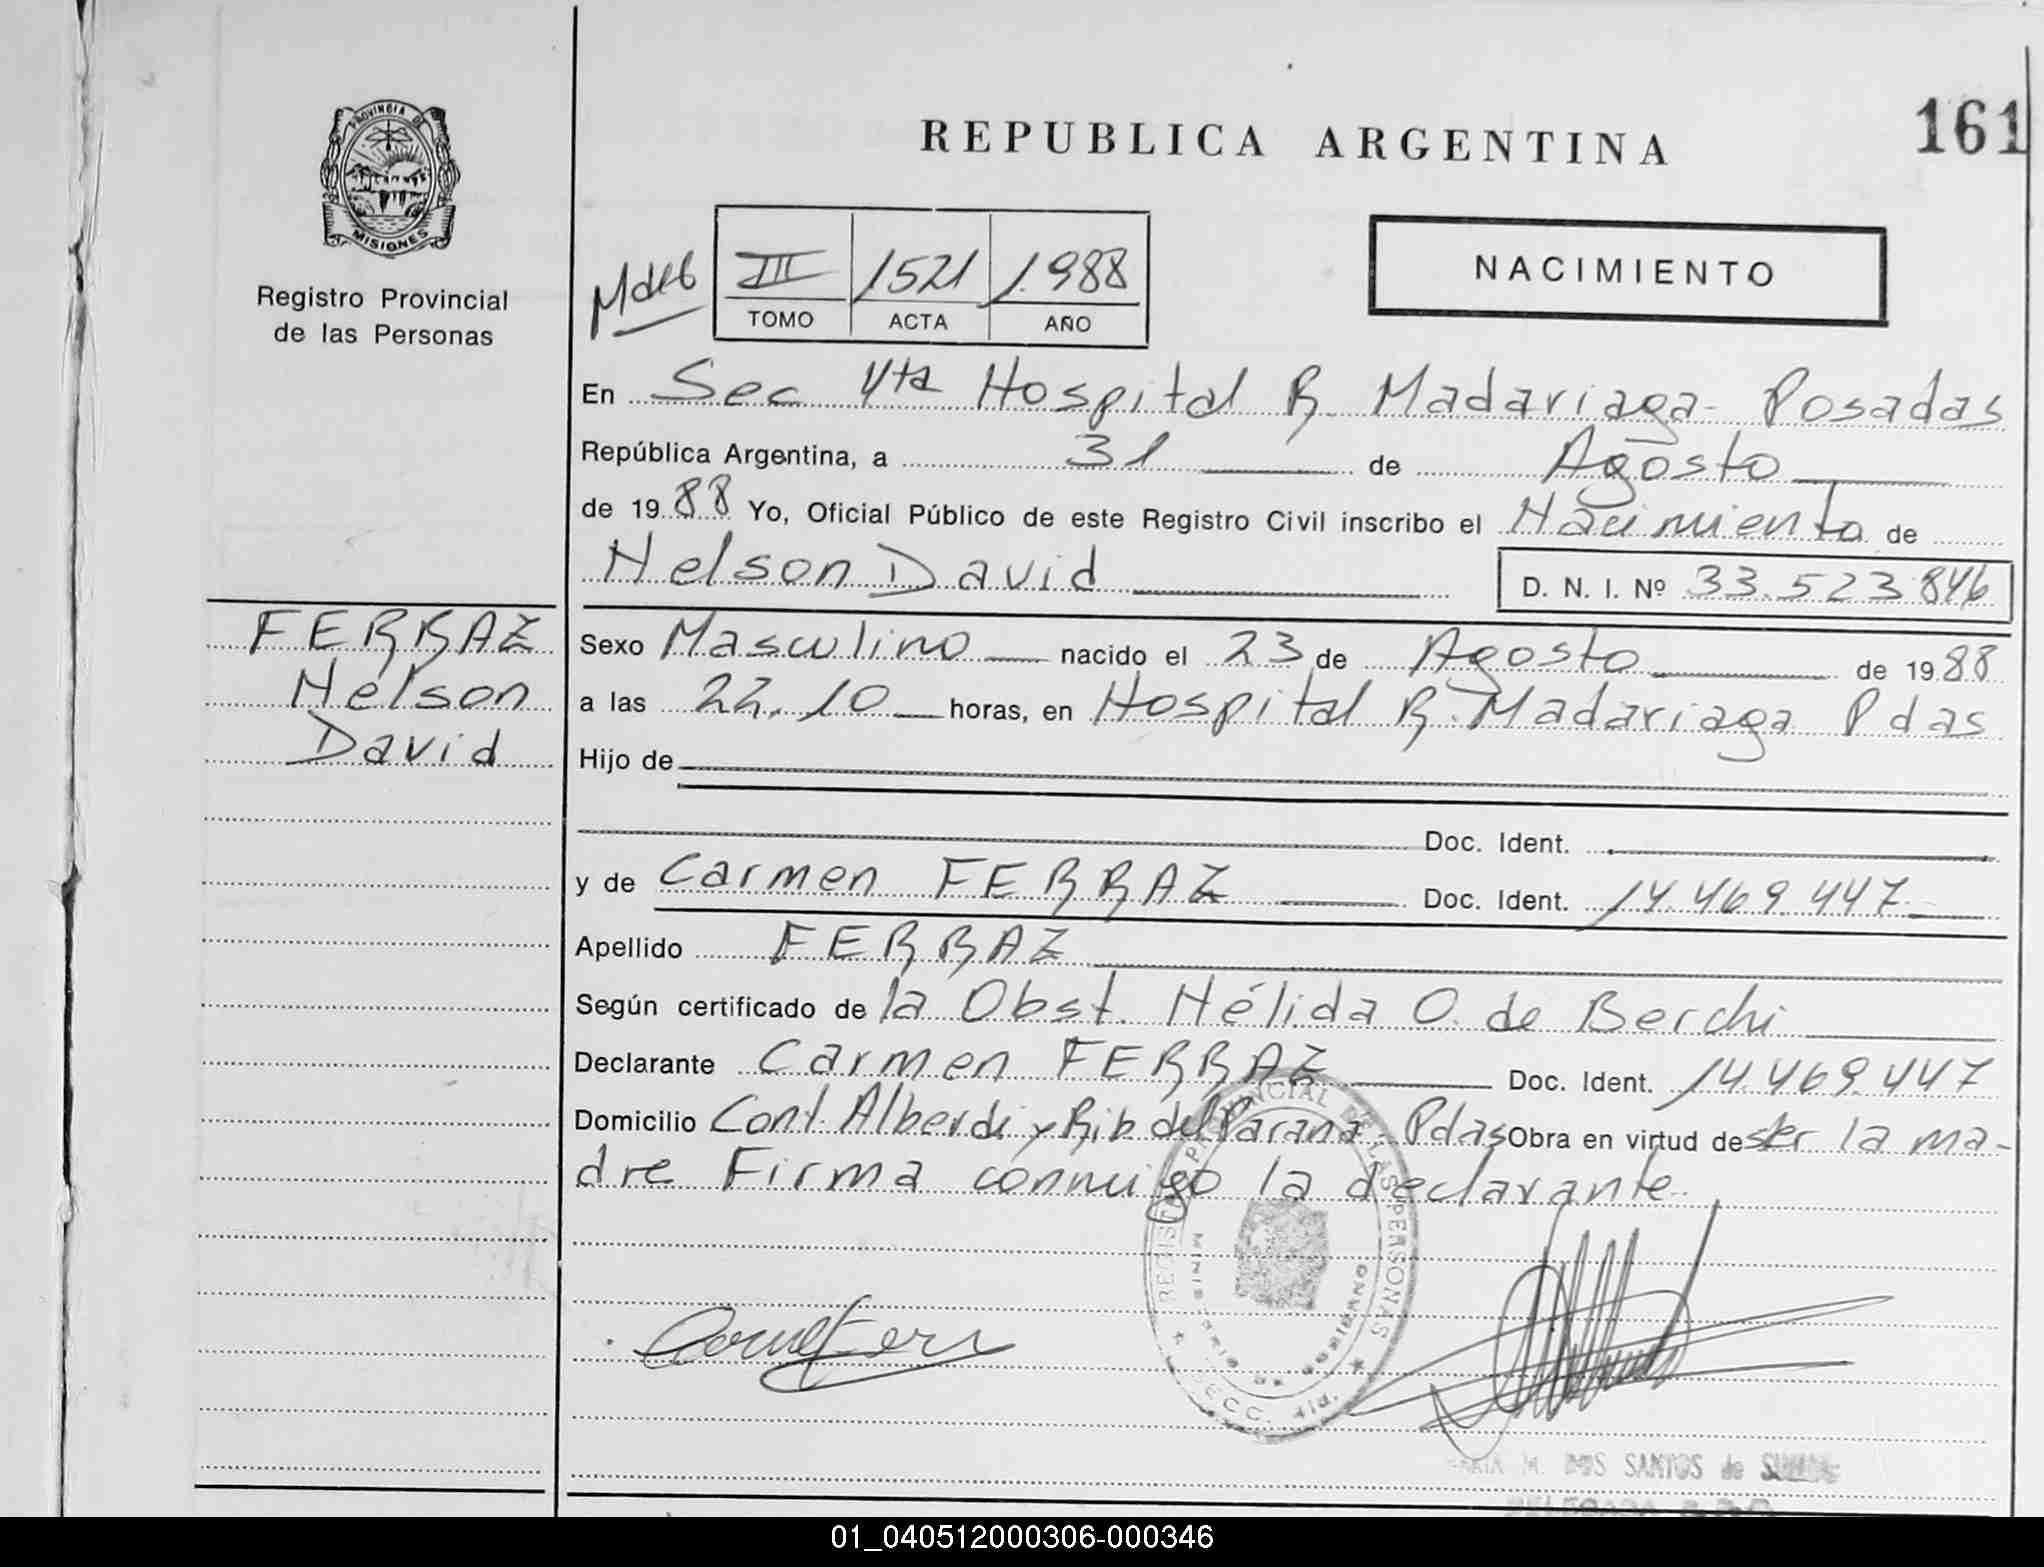 PROVINCIA DE
MISIONES
Registro Provincial
de las Personas
REPUBLICA ARGENTINA
161
III 1521 1.988
TOMO ACTA AÑO
NACIMIENTO
En Sec 4ta Hospital R. Madariaga - Posadas
República Argentina, a 31 de Agosto
de 1988 Yo, Oficial Público de este Registro Civil inscribo el Nacimiento de
Nelson David
D. N. I. Nº 33.523.846
FERRAZ
Nelson
David
Sexo Masculino nacido el 23 de Agosto de 1988
a las 22,10 horas, en Hospital R. Madariaga Pdas
Hijo de
Doc. Ident.
y de Carmen FERRAZ Doc. Ident. 14.469.447
Apellido FERRAZ
Según certificado de la Obst. Nélida O. de Berchi
Declarante Carmen FERRAZ Doc. Ident. 14.469.447
Domicilio Cont. Alberdi y Rib. del Parana - Pdas Obra en virtud de ser la ma-
dre Firma conmigo la declarante.
REGISTRO PROVINCIAL DE LAS PERSONAS
MINISTERIO DE GOBIERNO
M. DOS SANTOS de
01_040512000306-000346